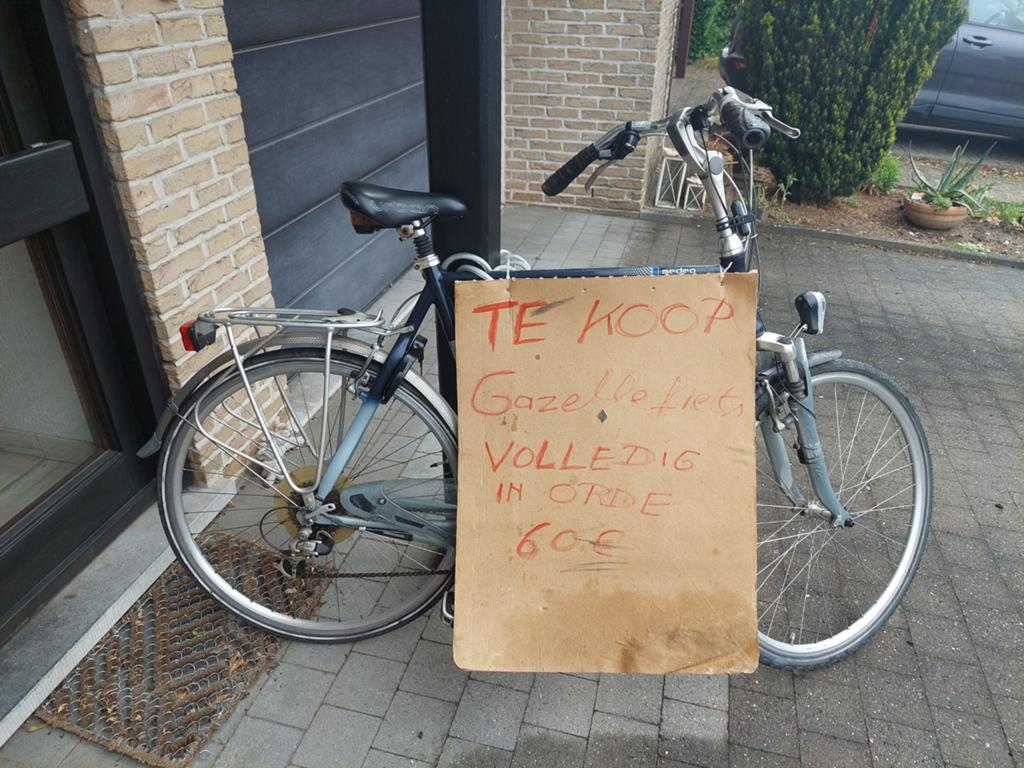 medeo
TE KOOP
Gazelle fiets
VOLLEDIG
IN ORDE
60 €